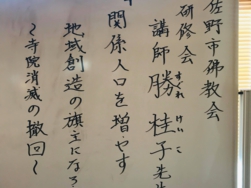 佐野市佛教会
研修会
講師 勝 桂子先生
すぐれ けいこ
関係人口を増やす
地域創造の旗主になろ
～寺院消滅の撤回～